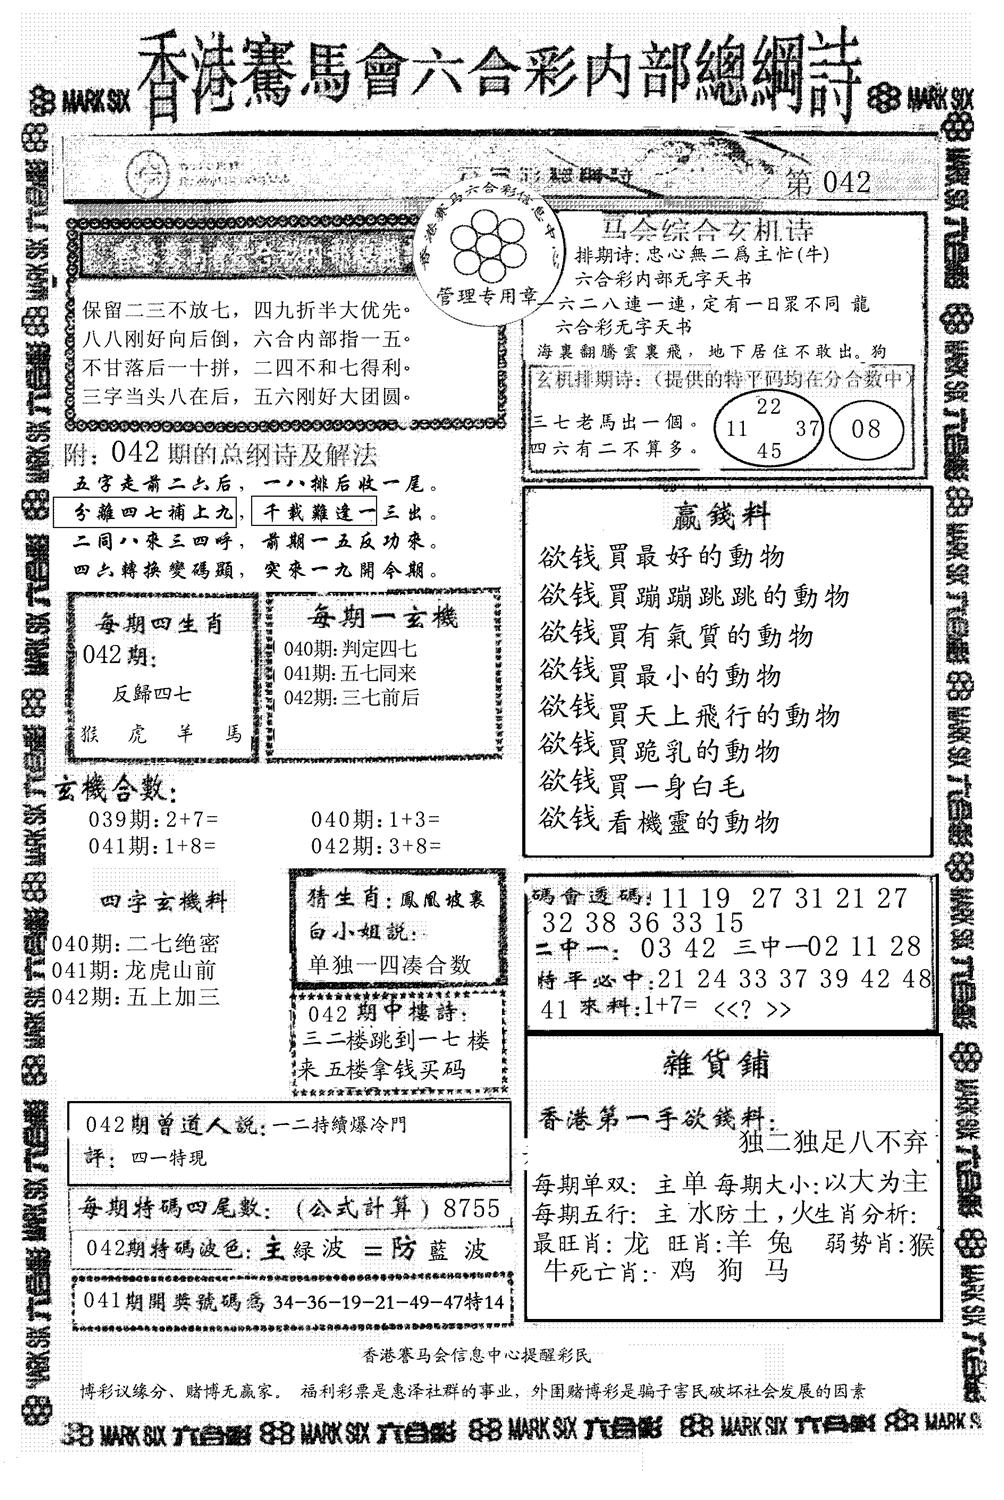 香港騫馬會六合彩内部總綱詩
MARK SIX
MARK SIX
第 042
香港赛马六合彩信息中心
管理专用章
保留二三不放七，四九折半大优先。
八八刚好向后倒，六合内部指一五。
不甘落后一十拼，二四不和七得利。
三字当头八在后，五六刚好大团圆。
马会综合玄机诗
排期诗：忠心無二爲主忙(牛)
六合彩内部无字天书
一六二八連一連，定有一日眾不同 龍
六合彩无字天书
海裏翻騰雲裏飛，地下居住不敢出。狗
玄机排期诗：（提供的特平码均在分合数中）
三七老馬出一個。
四六有二不算多。
22
11 37
45
08
附：042期的总纲诗及解法
五字走前二六后，一八排后收一尾。
分離四七補上九，千載難逢一三出。
二同八來三四呼，前期一五反功來。
四六轉换變碼顯，突來一九開今期。
每期四生肖
042期：
反歸四七
猴 虎 羊 馬
每期一玄機
040期：判定四七
041期：五七同来
042期：三七前后
赢錢料
欲钱買最好的動物
欲钱買蹦蹦跳跳的動物
欲钱買有氣質的動物
欲钱買最小的動物
欲钱買天上飛行的動物
欲钱買跪乳的動物
欲钱買一身白毛
欲钱看機靈的動物
玄機合數：
039期：2+7= 040期：1+3=
041期：1+8= 042期：3+8=
四字玄機料
040期：二七绝密
041期：龙虎山前
042期：五上加三
猜生肖：鳳凰坡裏
白小姐説：
单独一四凑合数
042期中樓詩：
三二楼跳到一七楼
来五楼拿钱买码
碼會透碼：11 19 27 31 21 27
32 38 36 33 15
二中一：03 42 三中一02 11 28
特平必中：21 24 33 37 39 42 48
41 來料：1+7= <<? >>
雜貨鋪
香港第一手欲錢料：
独二独足八不弃
每期单双：主单 每期大小：以大为主
每期五行：主 水防土，火生肖分析：
最旺肖：龙 旺肖：羊 兔 弱势肖：猴
牛死亡肖：鸡 狗 马
042期曾道人説：一二持續爆冷門
評：四一特現
每期特碼四尾數：(公式計算) 8755
042期特碼波色：主绿波＝防藍波
041期開獎號碼爲34-36-19-21-49-47特14
香港赛马会信息中心提醒彩民
博彩议缘分、赌博无赢家。 福利彩票是惠泽社群的事业，外围赌博彩是骗子害民破坏社会发展的因素
MARK SIX 六合彩 MARK SIX 六合彩 MARK SIX 六合彩 MARK SIX 六合彩 MARK SIX